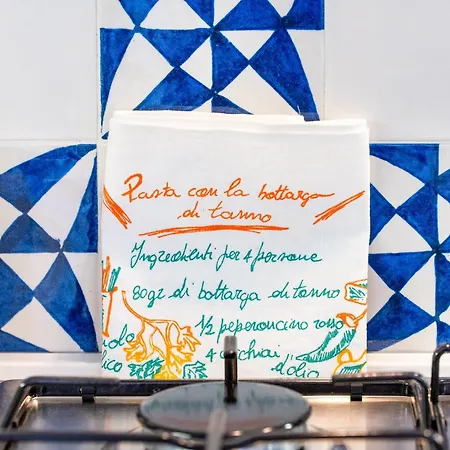 Pasta con la bottarga
di tonno
Ingredienti per 4 persone
80gr di bottarga di tonno
1/2 peperoncino rosso
4 cucchiai d'olio